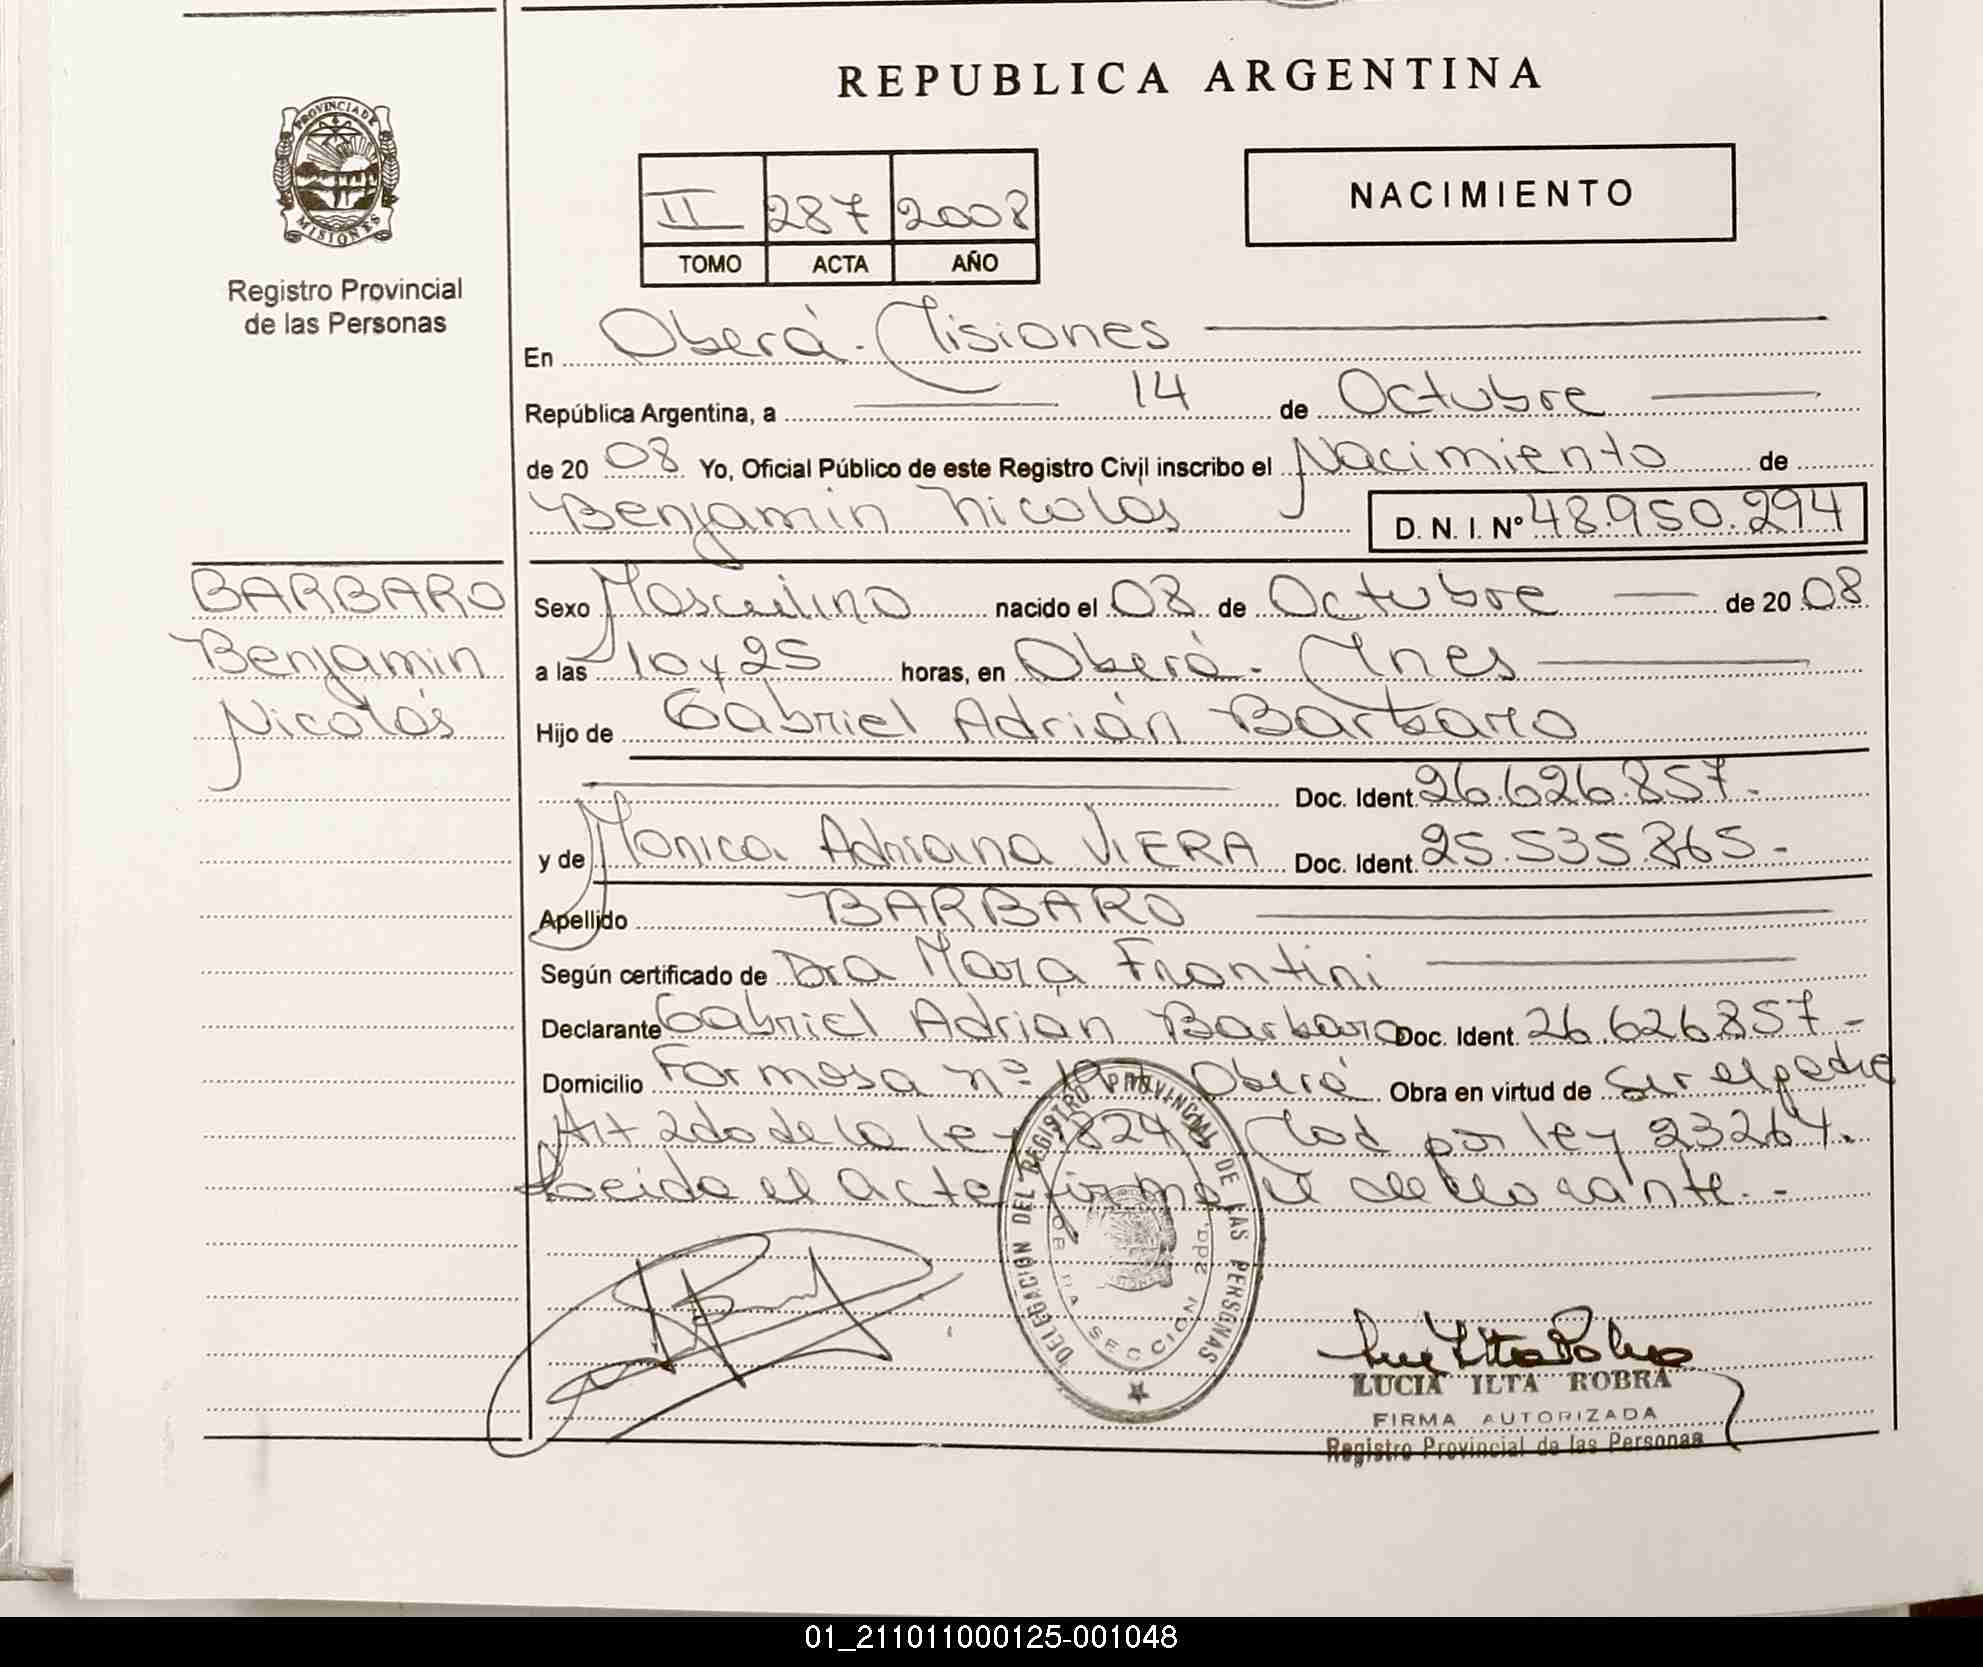 REPUBLICA ARGENTINA
PROVINCIA DE
MISIONES
Registro Provincial
de las Personas
II 287 2008
TOMO ACTA AÑO
NACIMIENTO
En Oberá - Misiones
República Argentina, a 14 de Octubre
de 20 08 Yo, Oficial Público de este Registro Civil inscribo el Nacimiento de
Benjamin Nicolás D. N. I. Nº 48.950.294
BARBARO
Benjamin
Nicolás
Sexo Masculino nacido el 08 de Octubre de 20 08
a las 10 y 25 horas, en Oberá - Mnes
Hijo de Gabriel Adrián Barbaro
Doc. Ident. 26.626.857.-
y de Monica Adriana VIERA Doc. Ident. 25.535.865.-
Apellido BARBARO
Según certificado de Dra Mara Frontini
Declarante Gabriel Adrián Barbaro Doc. Ident. 26.626.857-
Domicilio Formosa nº Oberá Obra en virtud de Ser el padre
Art 2do de la ley 18248 Mod por ley 23264.
Leida el acta firma el declarante.-
DELEGACIÓN DEL REGISTRO PROVINCIAL DE LAS PERSONAS
SECCION 2DA.
LUCIA ILTA ROBRA
FIRMA AUTORIZADA
Registro Provincial de las Personas
01_211011000125-001048